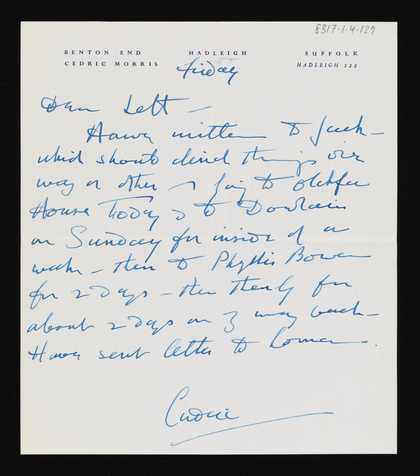 8317.1.4.129
BENTON END HADLEIGH SUFFOLK
CEDRIC MORRIS HADLEIGH 222
Friday
Dear Lett –
Have written to Jack –
which should clinch things one
way or other – going to
House Today & to Dowlais
on Sunday for inside of a
week – then to Phyllis Bowen
for 2 days – then
about 2 days on way back –
Have sent letter to
Cedric